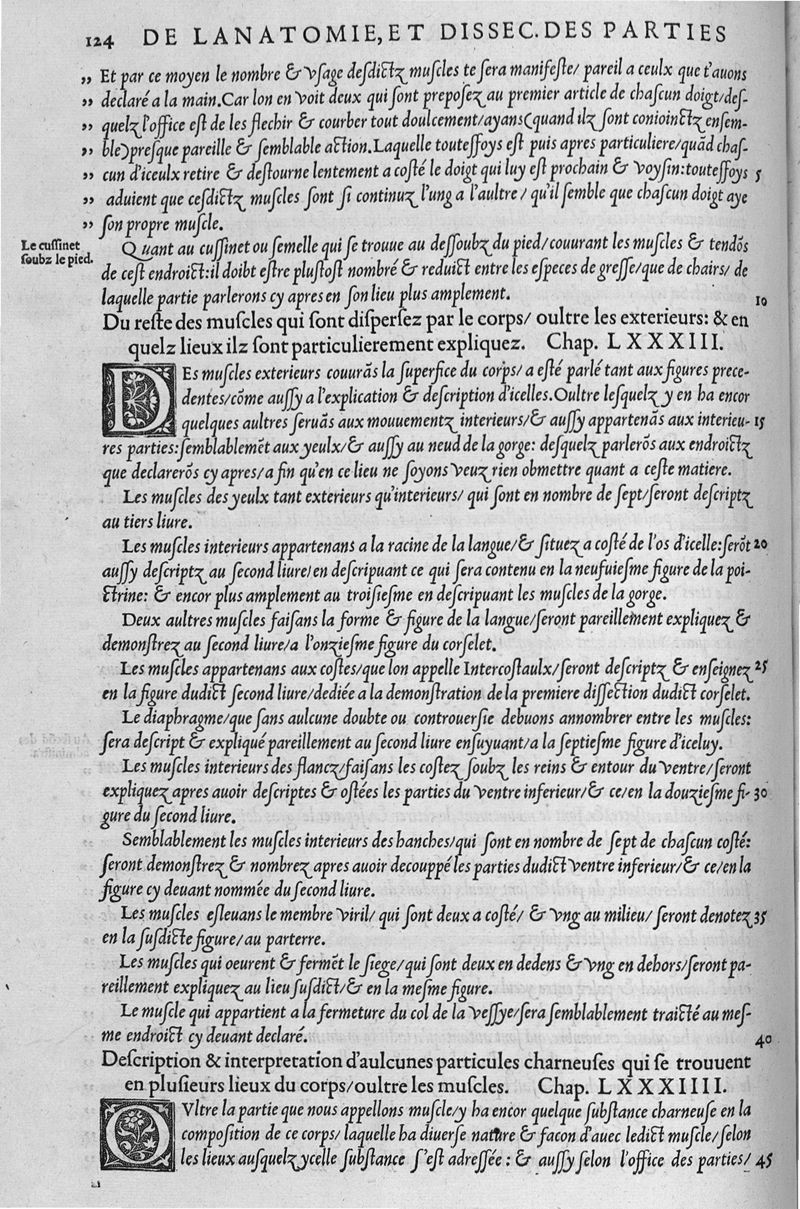 124 DE LANATOMIE, ET DISSEC. DES PARTIES
„ Et par ce moyen le nombre & vſage deſdictz muſcles te ſera manifeſte/ pareil a ceulx que t'auons
„ declaré a la main.Car lon en voit deux qui ſont prepoſez au premier article de chaſcun doigt/deſ-
„ quelz l'office eſt de les flechir & courber tout doulcement/ayans(quand ilz ſont conioinctz enſem-
„ ble)preſque pareille & ſemblable action.Laquelle touteſfoys eſt puis apres particuliere/quãd chaſ-
„ cun d'iceulx retire & deſtourne lentement a coſté le doigt qui luy eſt prochain & voyſin:touteſfoys 5
„ aduient que ceſdictz muſcles ſont ſi continuz l'ung a l'aultre / qu'il ſemble que chaſcun doigt aye
„ ſon propre muſcle.
Le cuſſinet
ſoubz le pied.
Quant au cuſſinet ou ſemelle qui ſe trouue au deſſoubz du pied/couurant les muſcles & tendõs
de ceſt endroict:il doibt eſtre pluſtoſt nombré & reduict entre les eſpeces de greſſe/que de chairs/ de
laquelle partie parlerons cy apres en ſon lieu plus amplement. 10
Du reſte des muſcles qui ſont diſperſez par le corps/ oultre les exterieurs: & en
quelz lieux ilz ſont particulierement expliquez. Chap. LXXXIII.
DEs muſcles exterieurs couurãs la ſuperfice du corps/ a eſté parlé tant aux figures prece-
dentes/cõme auſſy a l'explication & deſcription d'icelles.Oultre leſquelz y en ha encor
quelques aultres ſeruãs aux mouuementz interieurs/& auſſy appartenãs aux interieu- 15
res parties:ſemblablemẽt aux yeulx/& auſſy au neud de la gorge: deſquelz parlerõs aux endroictz
que declarerõs cy apres/a fin qu'en ce lieu ne ſoyons veuz rien obmettre quant a ceſte matiere.
Les muſcles des yeulx tant exterieurs qu'interieurs/ qui ſont en nombre de ſept/ſeront deſcriptz
au tiers liure.
Les muſcles interieurs appartenans a la racine de la langue/& ſituez a coſté de l'os d'icelle:ſerõt 20
auſſy deſcriptz au ſecond liure/en deſcripuant ce qui ſera contenu en la neufuieſme figure de la poi-
ctrine: & encor plus amplement au troiſieſme en deſcripuant les muſcles de la gorge.
Deux aultres muſcles faiſans la forme & figure de la langue/ſeront pareillement expliquez &
demonſtrez au ſecond liure/a l'onzieſme figure du corſelet.
Les muſcles appartenans aux coſtes/que lon appelle Intercoſtaulx/ſeront deſcriptz & enſeignez 25
en la figure dudict ſecond liure/dediée a la demonſtration de la premiere diſſection dudict corſelet.
Le diaphragme/que ſans aulcune doubte ou controuerſie debuons annombrer entre les muſcles:
ſera deſcript & expliqué pareillement au ſecond liure enſuyuant/a la ſeptieſme figure d'iceluy.
Les muſcles interieurs des flancz/faiſans les coſtez ſoubz les reins & entour du ventre/ſeront
expliquez apres auoir deſcriptes & oſtées les parties du ventre inferieur/& ce/en la douzieſme fi- 30
gure du ſecond liure.
Semblablement les muſcles interieurs des hanches/qui ſont en nombre de ſept de chaſcun coſté:
ſeront demonſtrez & nombrez apres auoir decouppé les parties dudict ventre inferieur/& ce/en la
figure cy deuant nommée du ſecond liure.
Les muſcles eſleuans le membre viril/ qui ſont deux a coſté/ & vng au milieu/ ſeront denotez 35
en la ſuſdicte figure/au parterre.
Les muſcles qui oeurent & fermẽt le ſiege/qui ſont deux en dedens & vng en dehors/ſeront pa-
reillement expliquez au lieu ſuſdict/& en la meſme figure.
Le muſcle qui appartient a la fermeture du col de la veſſye/ſera ſemblablement traicté au meſ-
me endroict cy deuant declaré. 40
Deſcription & interpretation d'aulcunes particules charneuſes qui ſe trouuent
en pluſieurs lieux du corps/oultre les muſcles. Chap. LXXXIIII.
OVltre la partie que nous appellons muſcle/y ha encor quelque ſubſtance charneuſe en la
compoſition de ce corps/ laquelle ha diuerſe nature & facon d'auec ledict muſcle/ſelon
les lieux auſquelz ycelle ſubſtance s'eſt adreſſée : & auſſy ſelon l'office des parties/ 45